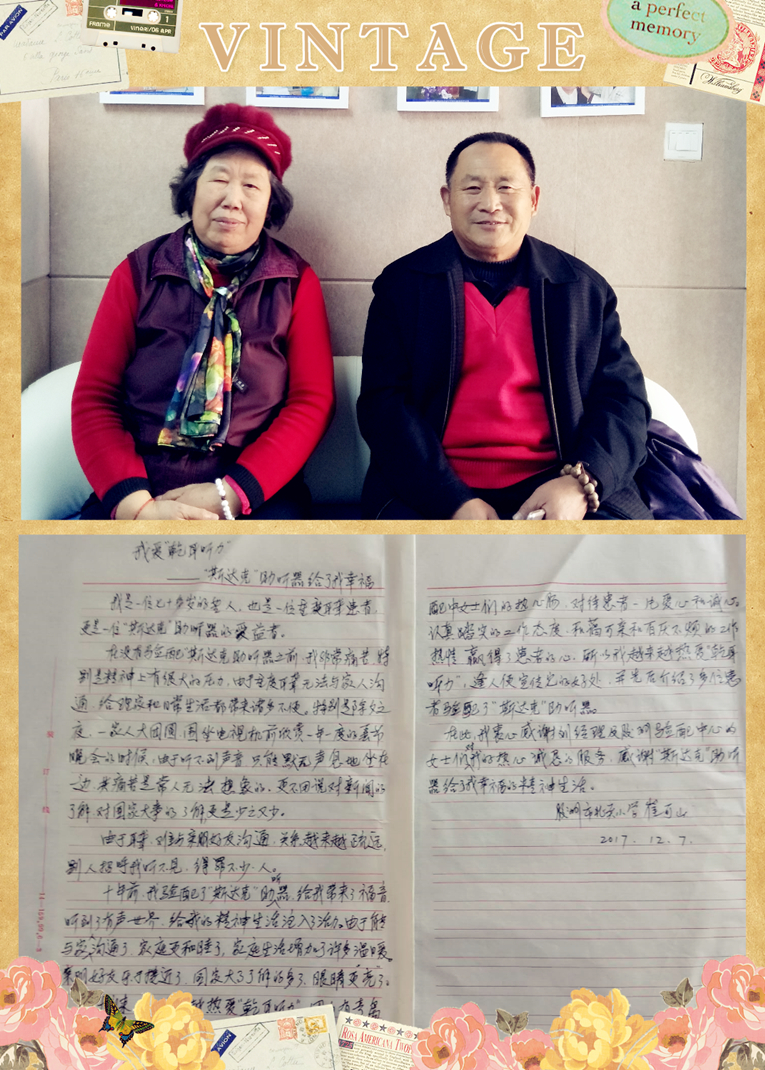 VINTAGE
a perfect
memory
我爱"乾耳听力"
——"斯达克"助听器给了我幸福
我是一位七十多岁的老人，也是一位重度耳聋患者，
更是一位"斯达克"助听器的受益者。
在没有验配"斯达克"助听器之前，我非常痛苦，特
别是精神上有很大的压力，由于重度耳聋无法与家人沟
通，给我家和日常生活都带来诸多不便。特别是除夕之
夜，一家人大团圆，围坐电视机前欣赏一年一度的春节
晚会的时候，由于听不到声音，只能默无声息地坐在
一边，其痛苦是常人无法想象的，更不用说对新闻的
了解，对国家大事的了解更是少之又少。
由于耳聋，对亲朋好友沟通，关系越来越疏远，
别人招呼我听不见，得罪不少人。
十年前，我验配了"斯达克"助听器，给我带来了福音，
听到了有声世界，给我的精神生活注入了活力。由于能
与家人沟通了，家庭更和睦了，家庭生活增加了许多温暖，
亲朋好友乐于接近了，国家大事了解的多了，眼睛更亮了。
热爱"乾耳听力"
配中女士们的热心肠，对待患者一片爱心和诚心，
认真踏实的工作态度，和蔼可亲和百厌不烦的工作
热情，赢得了患者的心。所以我越来越热爱"乾耳
听力"，逢人便宣传它的好处，并先后介绍了多位患
者验配了"斯达克"助听器。
在此，我衷心感谢刘经理及胶州验配中心的
女士们的热心诚恳的服务，感谢"斯达克"助听
器给了我幸福的精神生活。
胶州市北关小学 崔可山
2017.12.7.